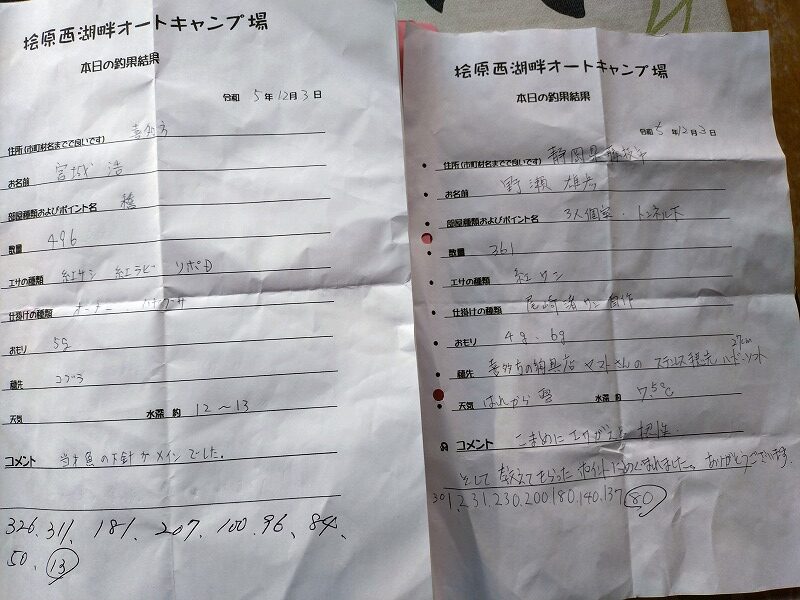 桧原西湖畔オートキャンプ場
本日の釣果結果
令和 5年12月3日
住所(市町村名までで良いです) 喜多方
お名前 宮城 浩
部屋種類およびポイント名
数量 496
エサの種類 紅サシ 紅ラビー リポD
仕掛けの種類 オーナー
おもり 5g
穂先 コブラ
天気 水深 約 12〜13
コメント 下針がメインでした。
326、311、181、207、100、96、84、
50、13
桧原西湖畔オートキャンプ場
本日の釣果結果
令和5年12月3日
住所(市町村名までで良いです) 静岡県
お名前 野瀬 雄
部屋種類およびポイント名 3人個室・トンネル下
数量 361
エサの種類 紅サシ
仕掛けの種類 自作
おもり 4g、6g
穂先 喜多方の釣具店 ヤマトさんの ステンレス穂先 27cm ハード・ソフト
天気 はれから雪 水深 約 7.5℃
コメント こまめにエサがえを
として教えてもらったポイントにめぐまれました。ありがとうございます
301,231,230,200,180,140,137,80